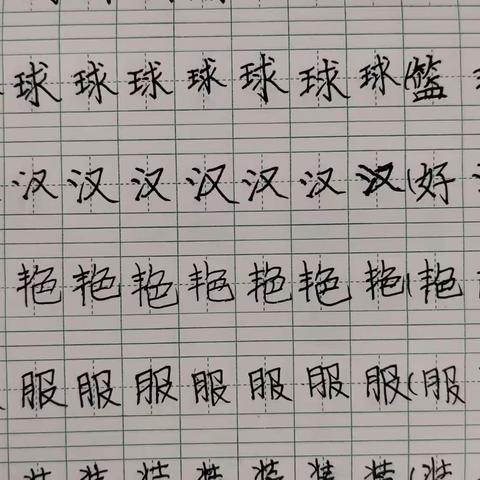 球球球球球球球(篮
汉汉汉汉汉汉汉(好
艳艳艳艳艳艳艳(艳
服服服服服服服(服
装装装装装装装(装